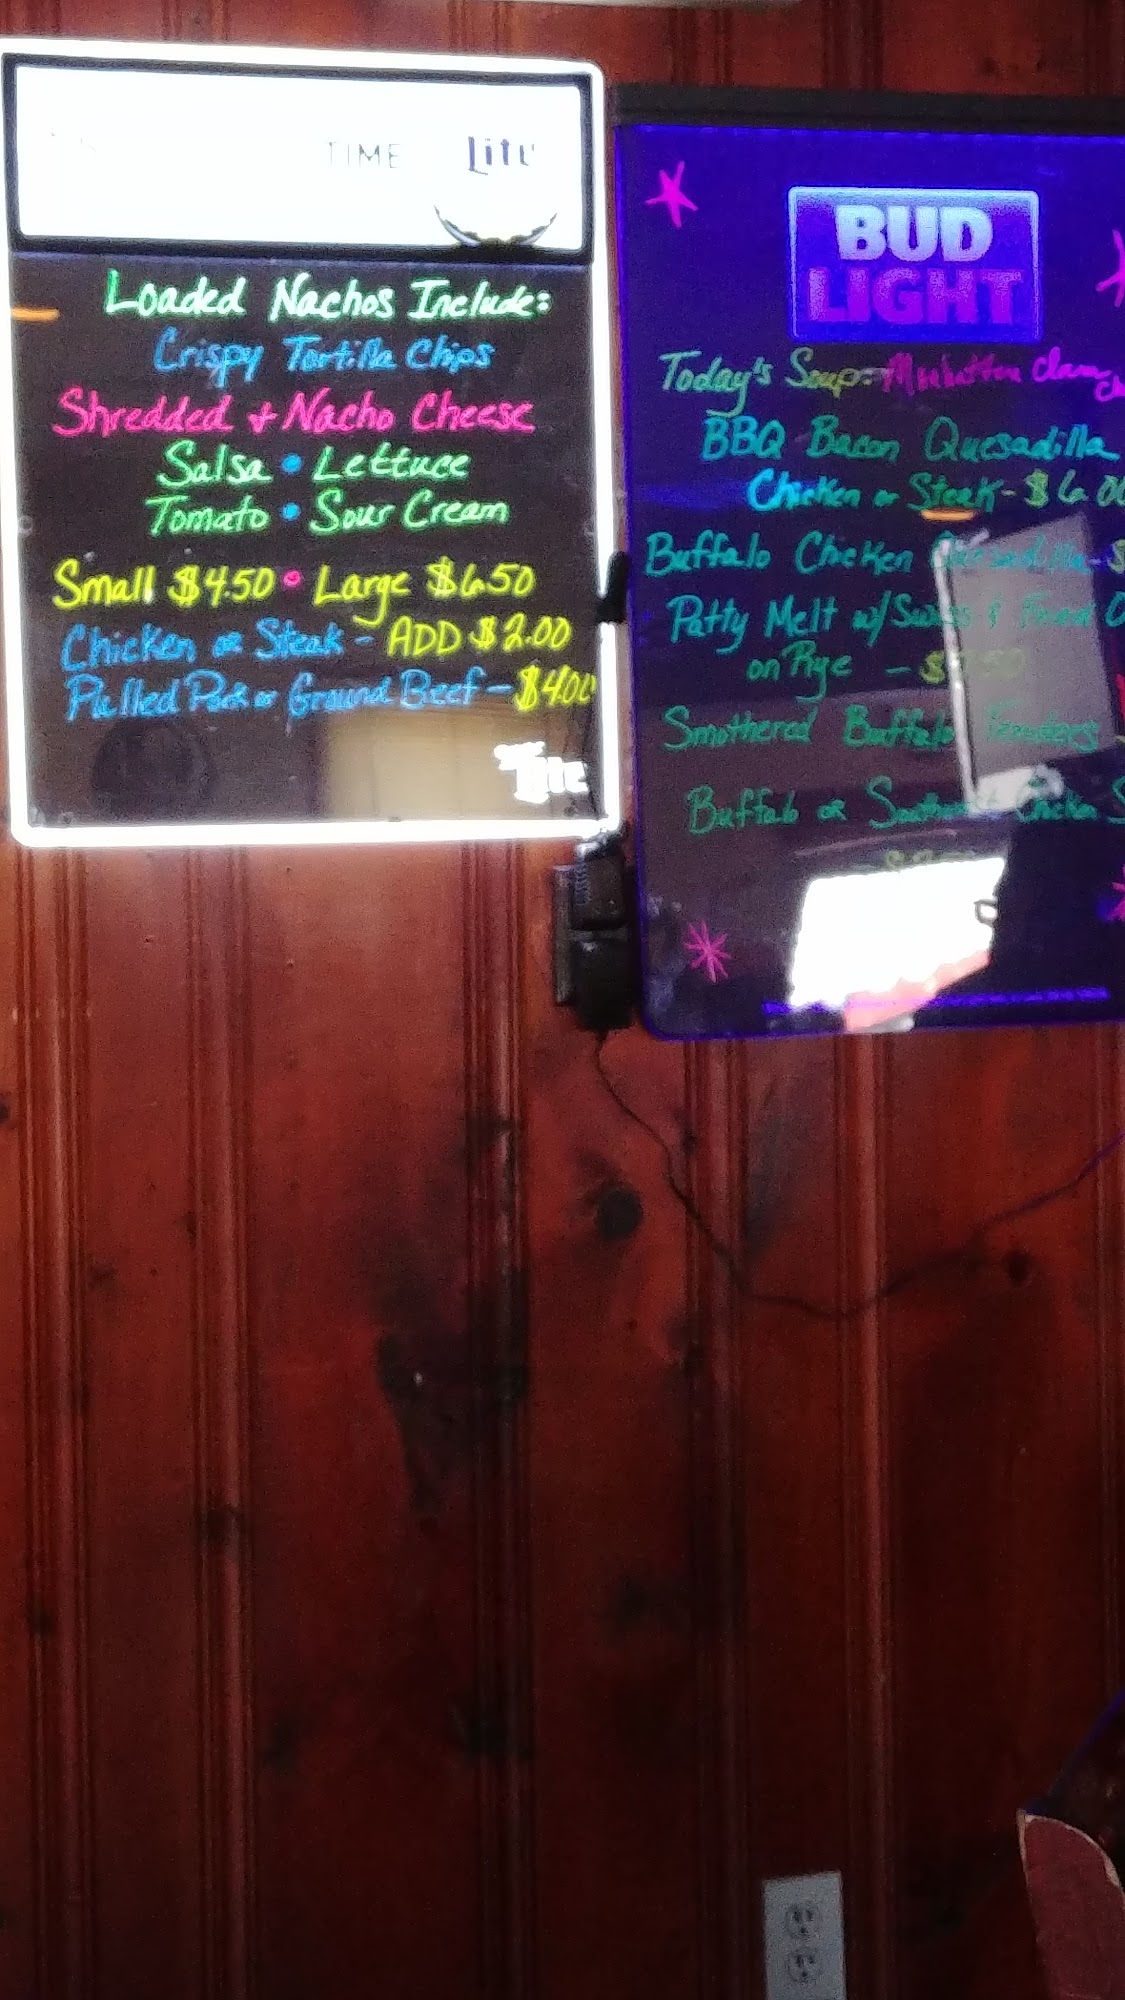 TIME Lite
Loaded Nachos Include:
Crispy Tortilla Chips
Shredded + Nacho Cheese
Salsa • Lettuce
Tomato • Sour Cream
Small $4.50 • Large $6.50
Chicken or Steak - ADD $2.00
Pulled Pork or Ground Beef - $4.00
Lite
BUD
LIGHT
Today's Soup- Manhattan Clam
BBQ Bacon Quesadilla
Chicken or Steak - $6.00
Buffalo Chicken Quesadilla - $
Patty Melt w/ Swiss & Fried O
on Rye - $
Smothered Buffalo Tenders
Buffalo or Southwest Chicken S